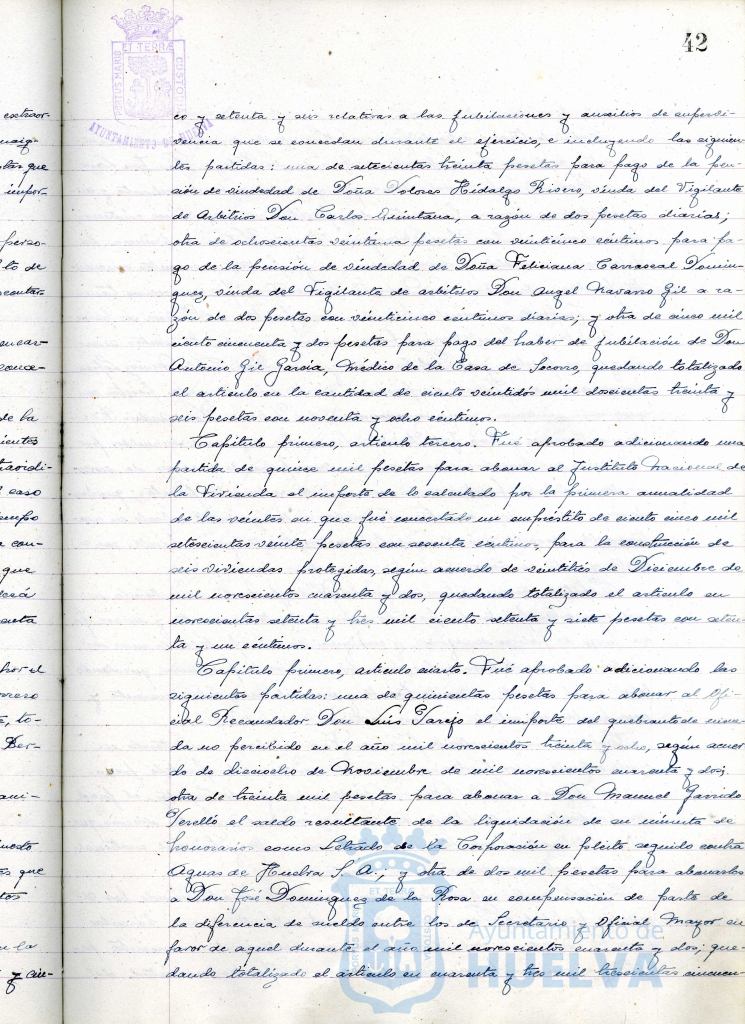 42
PORTUS MARIS ET TERRAE CUSTODIA
AYUNTAMIENTO DE HUELVA
co y setenta y seis relativas a las jubilaciones y auxilios de supervi-
vencia que se concedan durante el ejercicio, e incluyendo las siguien-
tes partidas: una de setecientas treinta pesetas para pago de la pen-
sión de viudedad de Doña Dolores Hidalgo Rivero, viuda del Vigilante
de Arbitrios Don Carlos Quintana, a razón de dos pesetas diarias;
otra de ochocientas veintiuna pesetas con veinticinco céntimos para pa-
go de la pensión de viudedad de Doña Feliciana Carrascal Domin-
guez, viuda del Vigilante de arbitrios Don Angel Navarro Gil a ra-
zón de dos pesetas con veinticinco céntimos diarias; y otra de cinco mil
ciento cincuenta y dos pesetas para pago del haber de jubilación de Don
Antonio Gil García, Médico de la Casa de Socorro, quedando totalizado
el articulo en la cantidad de ciento veintidós mil doscientas treinta y
seis pesetas con noventa y ocho céntimos.
Capítulo primero, articulo tercero. Fué aprobado adicionando una
partida de quince mil pesetas para abonar al Instituto Nacional de
la Vivienda el importe de lo calculado por la primera anualidad
de las veintes en que fué concertado un empréstito de ciento cinco mil
setecientas veinte pesetas con sesenta céntimos, para la construcción de
seis viviendas protegidas, según acuerdo de veintitrés de Diciembre de
mil novecientos cuarenta y dos, quedando totalizado el articulo en
novecientas setenta y tres mil ciento setenta y siete pesetas con seten-
ta y un céntimos.
Capítulo primero, articulo cuarto. Fué aprobado adicionando las
siguientes partidas: una de quinientas pesetas para abonar al Ofi-
cial Recaudador Don Luis Garejo el importe del quebranto de mone-
da no percibido en el año mil novecientos treinta y ocho, según acuer
do de dieciocho de Noviembre de mil novecientos cuarenta y dos;
otra de treinta mil pesetas para abonar a Don Manuel Garrido
Perelló el saldo resultante de la liquidación de su minuta de
honorarios como Letrado de la Corporación en pleito seguido contra
Aguas de Huelva S.A.; y otra de dos mil pesetas para abonarlas
a Don José Dominguez de la Rosa en compensación de parte de
la diferencia de sueldo entre los de Secretario y Oficial Mayor en
favor de aquel durante el año mil novecientos cuarenta y dos; que-
dando totalizado el articulo en cuarenta y tres mil trescientas cincuen-
Ayuntamiento de
HUELVA